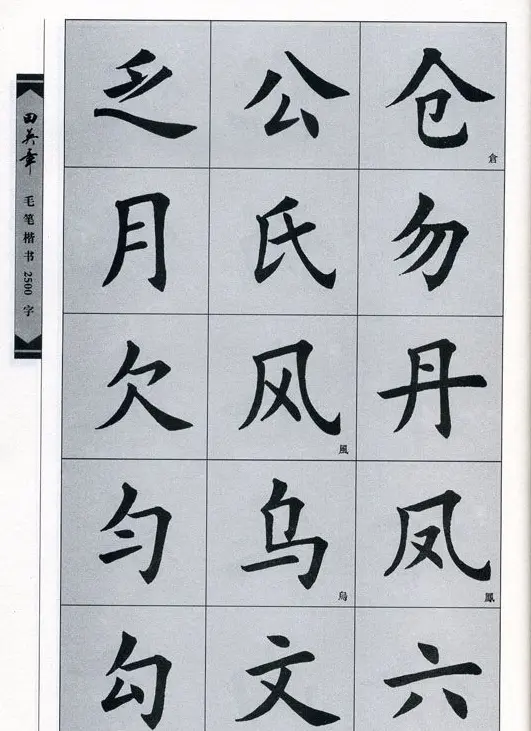 田英章 毛笔楷书2500字
乏 公 仓 倉
月 氏 勿
欠 风 風 丹
匀 乌 烏 凤 鳳
勾 文 六